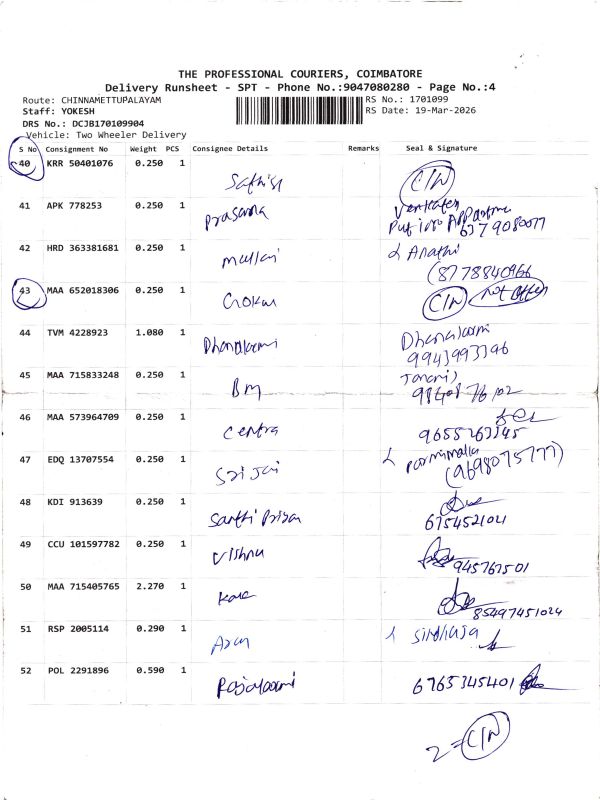 THE PROFESSIONAL COURIERS, COIMBATORE
Delivery Runsheet - SPT - Phone No.:9047080280 - Page No.:4
Route: CHINNAMETTUPALAYAM RS No.: 1701099
Staff: YOKESH RS Date: 19-Mar-2026
DRS No.: DCJB170109904
Vehicle: Two Wheeler Delivery
S No Consignment No Weight PCS Consignee Details Remarks Seal & Signature
40 KRR 50401076 0.250 1
41 APK 778253 0.250 1 Prasanna Venkatesh
6379080077
42 HRD 363381681 0.250 1 Mullai Anathi
(8778840966
43 MAA 652018306 0.250 1 Gokul
44 TVM 4228923 1.080 1 Dhanalaxmi Dhanalaxmi
9943993396
45 MAA 715833248 0.250 1 BM
46 MAA 573964709 0.250 1 Centra
9655263345
47 EDQ 13707554 0.250 1 Sri Jai
(9698075777)
48 KDI 913639 0.250 1 Santhi Priya
6754521021
49 CCU 101597782 0.250 1 Vishnu
945767501
50 MAA 715405765 2.270 1
85497451024
51 RSP 2005114 0.290 1 Arun Sindhuja
52 POL 2291896 0.590 1 Rajalaxmi 6765345401